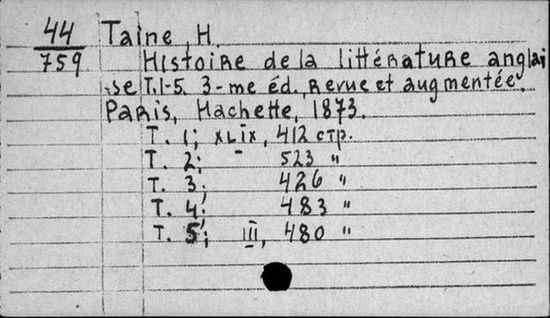 44 Taine, H.
759 Histoire de la littérature anglai
se T.1-5. 3-me éd., revue et augmentée.
Paris, Hachette, 1873.
T. 1; XLIX, 412 стр.
T. 2; - 523 "
T. 3; 426 "
T. 4; 483 "
T. 5; III, 480 "